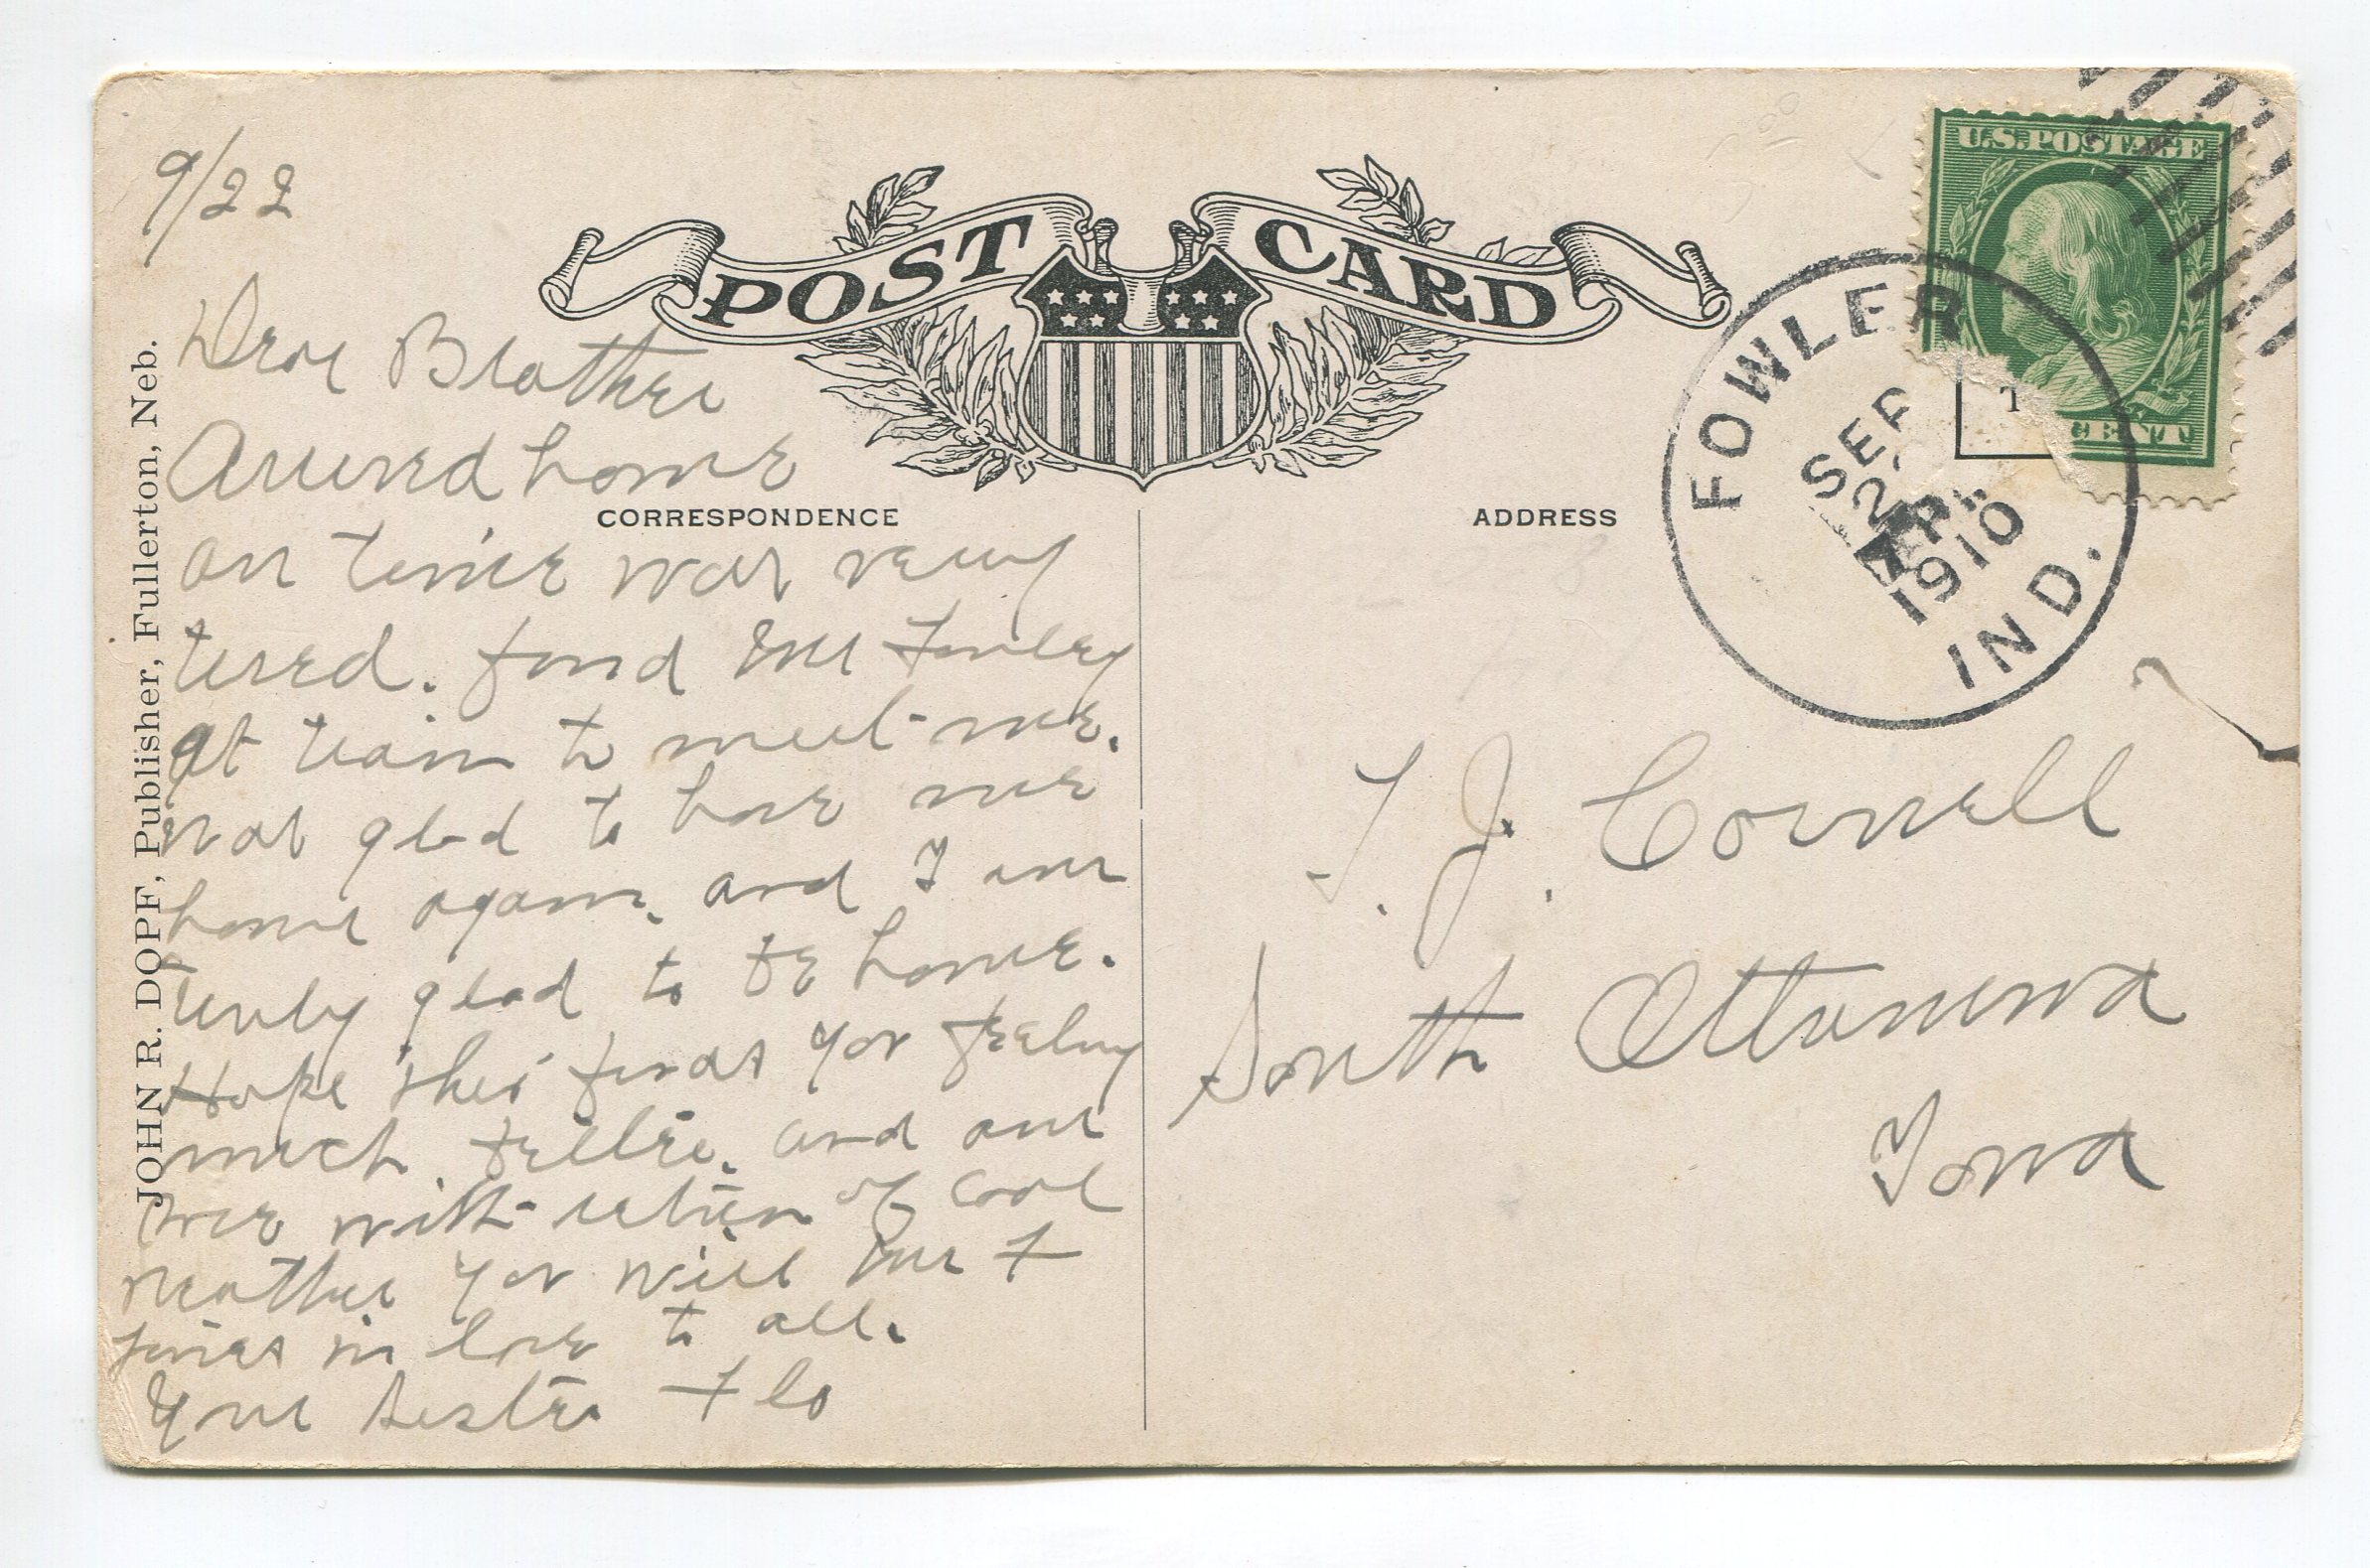 9/22
POST CARD
U.S. POSTAGE
CENT
FOWLER
SEP
2
1910
IND.
CORRESPONDENCE
ADDRESS
JOHN R. DOPF, Publisher, Fullerton, Neb.
Dear Brother
Arrived home
on time was very
tired. fond Mr Fowley
at train to meet me.
was glad to have me
home again. and I am
truly glad to be home.
Hope this finds you feeling
much better. and our
with return of cool
weather you will Mr F
joines in love to all.
Your Sister Flo
T. J. Cornell
South Ottumwa
Iowa